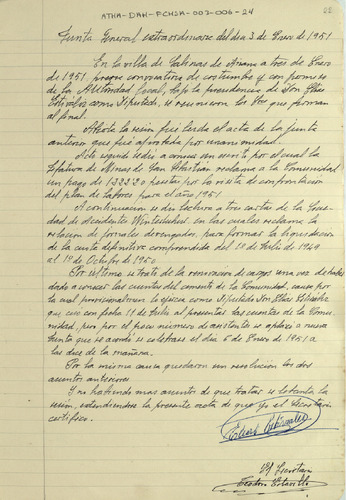 ATHA-DAH-FCHSA-007-006-24
Junta General extraordinaria del dia 3 de Enero de 1951
En la villa de Salinas de Añana a tres de Enero
de 1951 previa convocatoria de costumbre y con permiso
de la Autoridad local, bajo la presidencia de Don Elias
como Diputado, se reunieron los que firman
al final
Abierta la sesión fué leida el acta de la junta
anterior que fué aprobada por unanimidad.
Acto seguido se dió a conocer un escrito por el cual la
Jefatura de Minas de San Sebastian reclama a la Comunidad
un pago de pesetas por la visita de confrontación
del plan de labores para el año 1951
A continuación se dió lectura a tres cartas de la Socie
dad de Accidentes Winterthur en las cuales reclama la
relacion de jornales devengados, para formar la liquidacion
de la cuota definitiva comprendida del 1º de Julio de 1949
al 1º de Octubre de 1950
Por último se trata de la renovacion de cargos una vez de haber
dado a conocer las cuentas del comente de la Comunidad, cargo por
la cual provisionalmente lo ejercia como Diputado Don Elias
que ceso con fecha 11 de Julio al presentar las cuentas de la Comu
nidad, pero por el poco número de asistentes se aplazó a nueva
junta que se acordó se celebrase el dia 6 de Enero de 1951 a
las diez de la mañana.
Por la misma causa quedaron sin resolución los dos
asuntos anteriores
Y no habiendo mas asuntos de que tratar se levanta la
sesión, extendiendose la presente acta de que yo el Secretario
certifico.
El Secretario